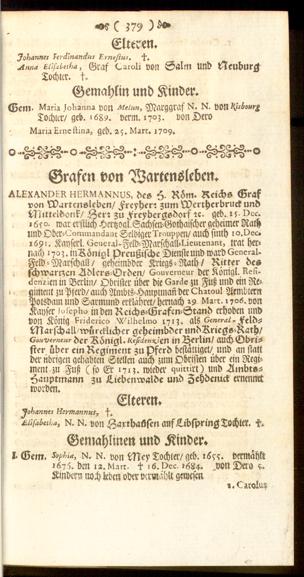 ( 379 )
Elteren.
Johannes Ferdinandus Ernestus, †.
Anna Elisabetha, Graf Caroli von Salm und Neuburg
Tochter. †.
Gemahlin und Kinder.
Gem. Maria Johanna von Melun, Marggraf N. N. von Risbourg
Tochter/ geb. 1689. verm. 1703. von Dero
Maria Ernestina, geb. 25. Mart. 1709.
Grafen von Wartensleben.
ALEXANDER HERMANNUS, des H. Röm. Reichs Graf
von Wartensleben/ Freyherr zum Wertherbruck und
Mitteldonk/ Herr zu Freybergsdorf ꝛc. geb. 15. Dec.
1650. war erstlich Hertzogl. Sachsen-Gothaischer geheimer Rath
und Ober-Commendant Selbiger Trouppen/ auch sint 10. Dec.
1691. Kayserl. General-Feld-Marschall-Lieutenant, trat her-
nach 1703. in Königl Preußische Dienste und ward General-
Feld-Marschall/ geheimder Kriegs-Rath/ Ritter des
schwarzen Adlers-Orden/ Gouverneur der Königl. Resi-
denzien in Berlin/ Obrister über die Garde zu Fuß und ein Re-
giment zu Pferd/ auch Ambts-Hauptman der Chatoul Aembtern
Potsdam und Sarmund erklähret/ hernach 29 Mart. 1706. von
Kayser Josepho in den Reichs-Grafen-Stand erhoben und
von König Friderico Wilhelmo 1713. als General-Feld-
Marschall/ würcklicher geheimder und Kriegs-Rath/
Gouverneur der Königl. Residenzien in Berlin/ auch Obri-
ster über ein Regiment zu Pferd bestättiget/ und an statt
der übrigen gehabten Stellen auch zum Obristen über ein Regi-
ment zu Fuß (so Er 1713. wieder quittirt) und Ambts-
Hauptmann zu Liebenwalde und Zehdenick ernennet
worden.
Elteren.
Johannes Hermannus, †.
Elisabetha, N. N. von Haxthausen auf Libspring Tochter. †.
Gemahlinen und Kinder.
I. Gem. Sophia, N. N. von Mey Tochter/ geb. 1655. vermählt
1676. den 12. Mart. † 16. Dec. 1684. von Dero 5.
Kindern noch leben oder vermählt gewesen
2. Carolus